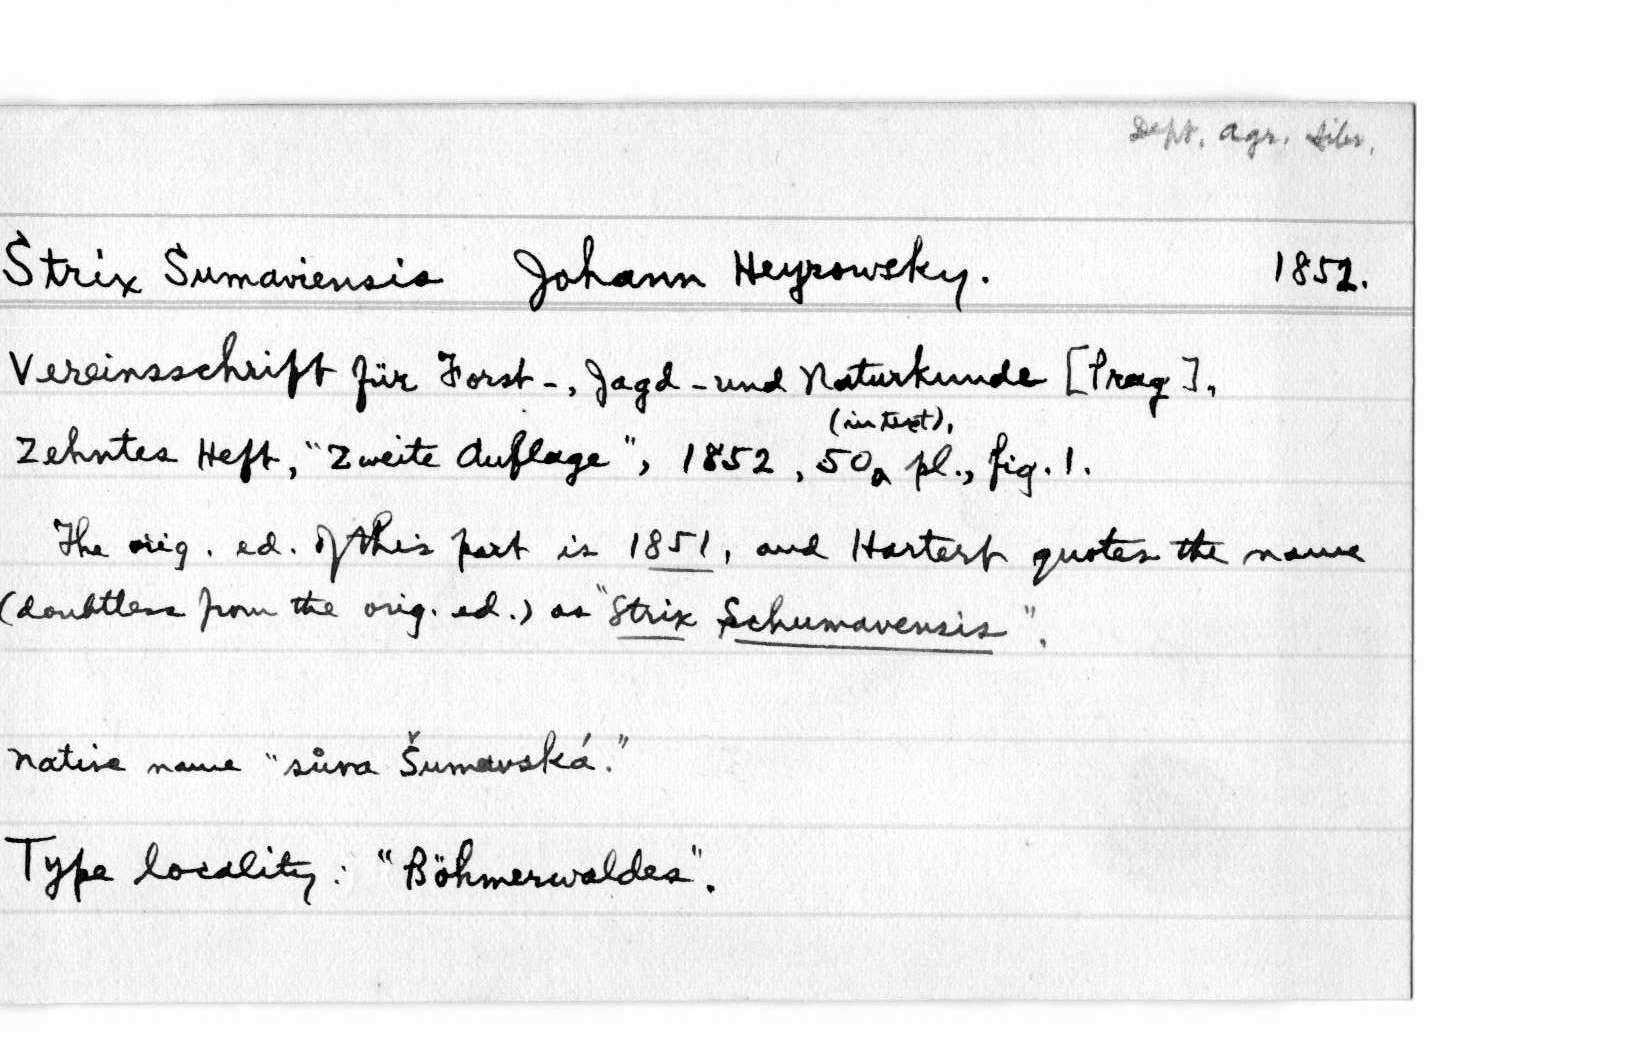 Dept. Agr. Libr.
Strix Sumaviensis Johann Heyrowsky. 1852.
Vereinsschrift für Forst-, Jagd-und Naturkunde [Prag],
Zehntes Heft, "Zweite Auflage", 1852, 50 (in text), pl., fig. 1.
The orig. ed. of this part is 1851, and Hartert quotes the name
(doubtless from the orig. ed.) as "Strix Schumavensis".
Native name "sůva Šumavská."
Type locality: "Böhmerwaldes".